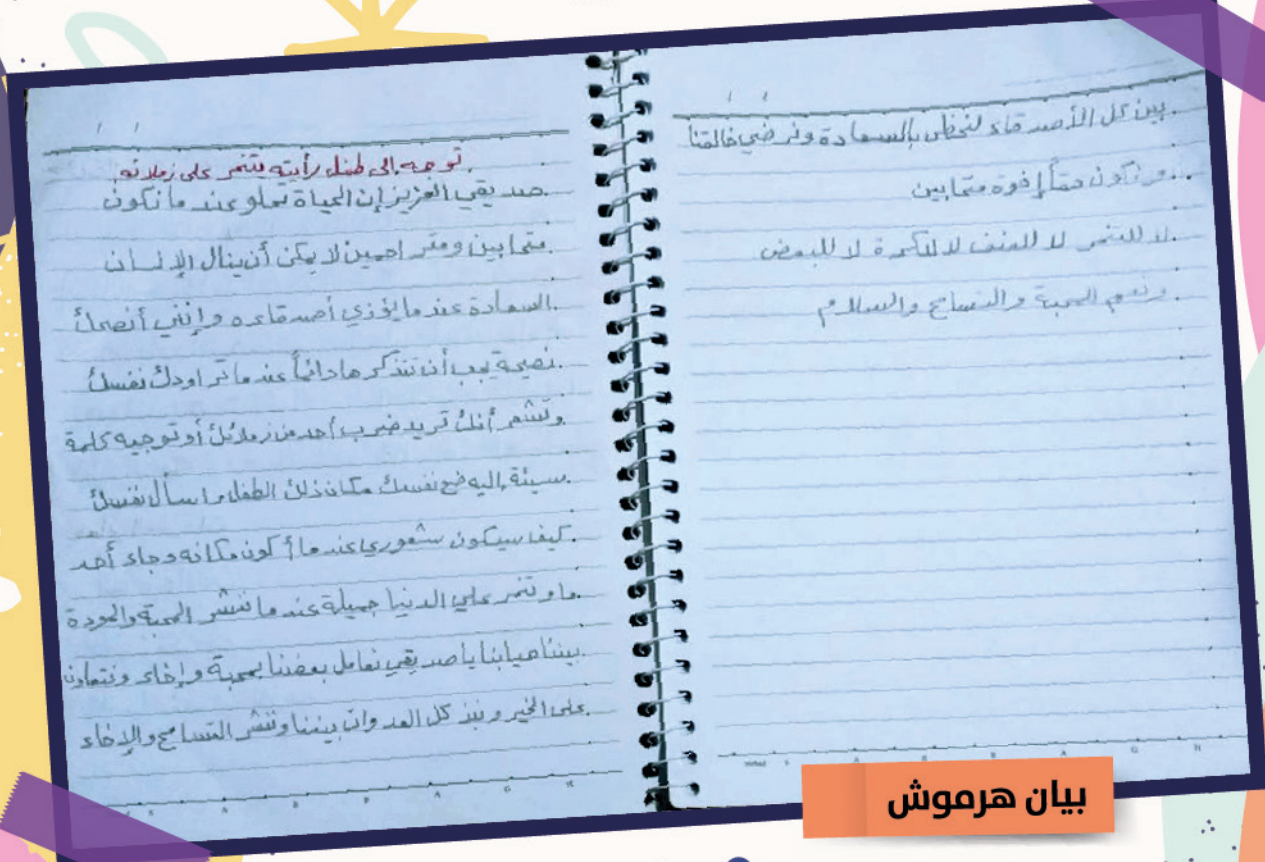 توجه إلى طفل رأيته يتنمر على زملائه.
صديقي العزيز إن الحياة تحلو عندما نكون
متحابين ومتراحمين لا يمكن أن ينال الإنسان
السعادة عندما يؤذي أصدقاءه وإنني أنصحك
نصيحة يجب أن تتذكرها دائماً عندما تراودك نفسك
وتشعر أنك تريد ضرب أحد من زملائك أو توجيه كلمة
سيئة إليه ضع نفسك مكان ذلك الطفل واسأل نفسك
كيف سيكون شعوري عندما أكون مكانه وجاء أحد
ما وتنمر علي الدنيا جميلة عندما ننشر المحبة والمودة
بيننا هيا بنا يا صديقي نعامل بعضنا بمحبة وإخاء ونتعاون
على الخير وننبذ كل العدوان بيننا وننشر التسامح والإخاء
بين كل الأصدقاء لنحظى بالسعادة ونرضي خالقنا
ونكون حقاً إخوة متحابين
لا للتنمر لا للعنف لا للكره لا للبغض
ونعم للمحبة والتسامح والسلام
بيان هرموش